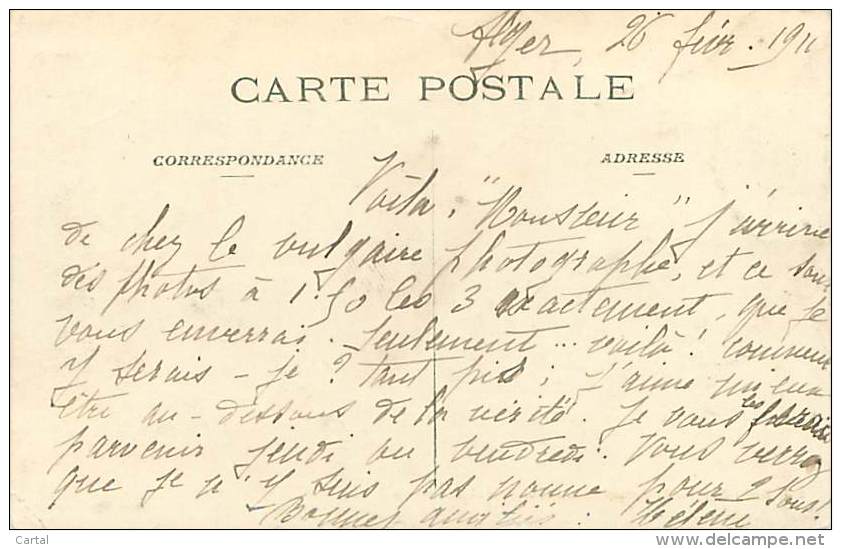 Alger, 26 févr. 1911
CARTE POSTALE
CORRESPONDANCE
ADRESSE
Voilà, "Monsieur" j'arrive
de chez le vulgaire photographe, et ce sont
des photos à 1.50 les 3 exactement, que je
vous enverrai. Seulement... voilà! comment
y serais-je? tant pis; j'aime mieux
être au-dessous de la vérité. Je vous les ferai
parvenir jeudi ou vendredi. Vous verrez
que je n'y suis pas nonne pour 2 sous!
Bonnes amitiés. Hélène
Cartal
www.delcampe.net